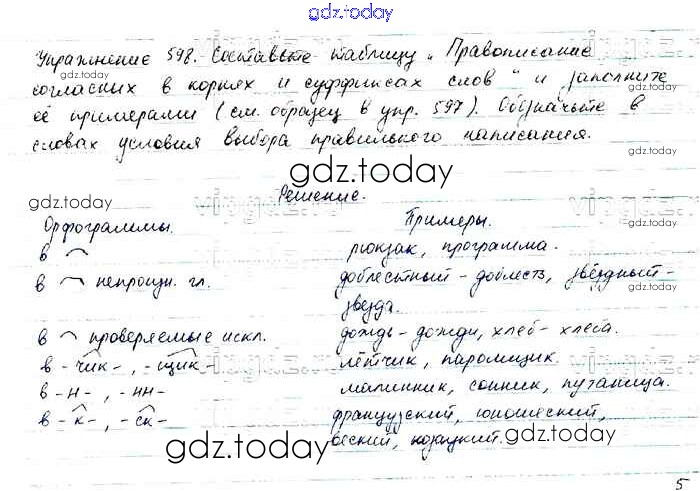 gdz.today
Упражнение 598. Составьте таблицу „Правописание
gdz.today
согласных в корнях и суффиксах слов" и заполните
её примерами (см. образец в упр. 597). Обозначьте в
gdz.today
словах условия выбора правильного написания.
gdz.today
Решение.
gdz.today
gdz.today
Орфограммы. Примеры.
в рюкзак, программа.
в непроизн. гл. доблестный - доблесть, звёздный-
gdz.today
звезда.
в проверяемые искл. дождь - дожди, хлеб - хлеба.
в - чик - , - щик - лётчик, паромщик
в - н - , - нн - малинник, сонник, путаница.
в - к - , - ск - французский, юношеский,
веский, ткацкий.
gdz.today
gdz.today
5